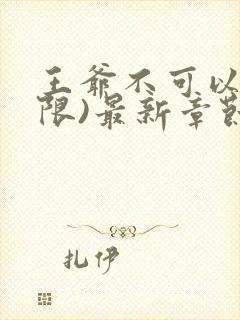 王爷不可以
限)最新章节
扎伊